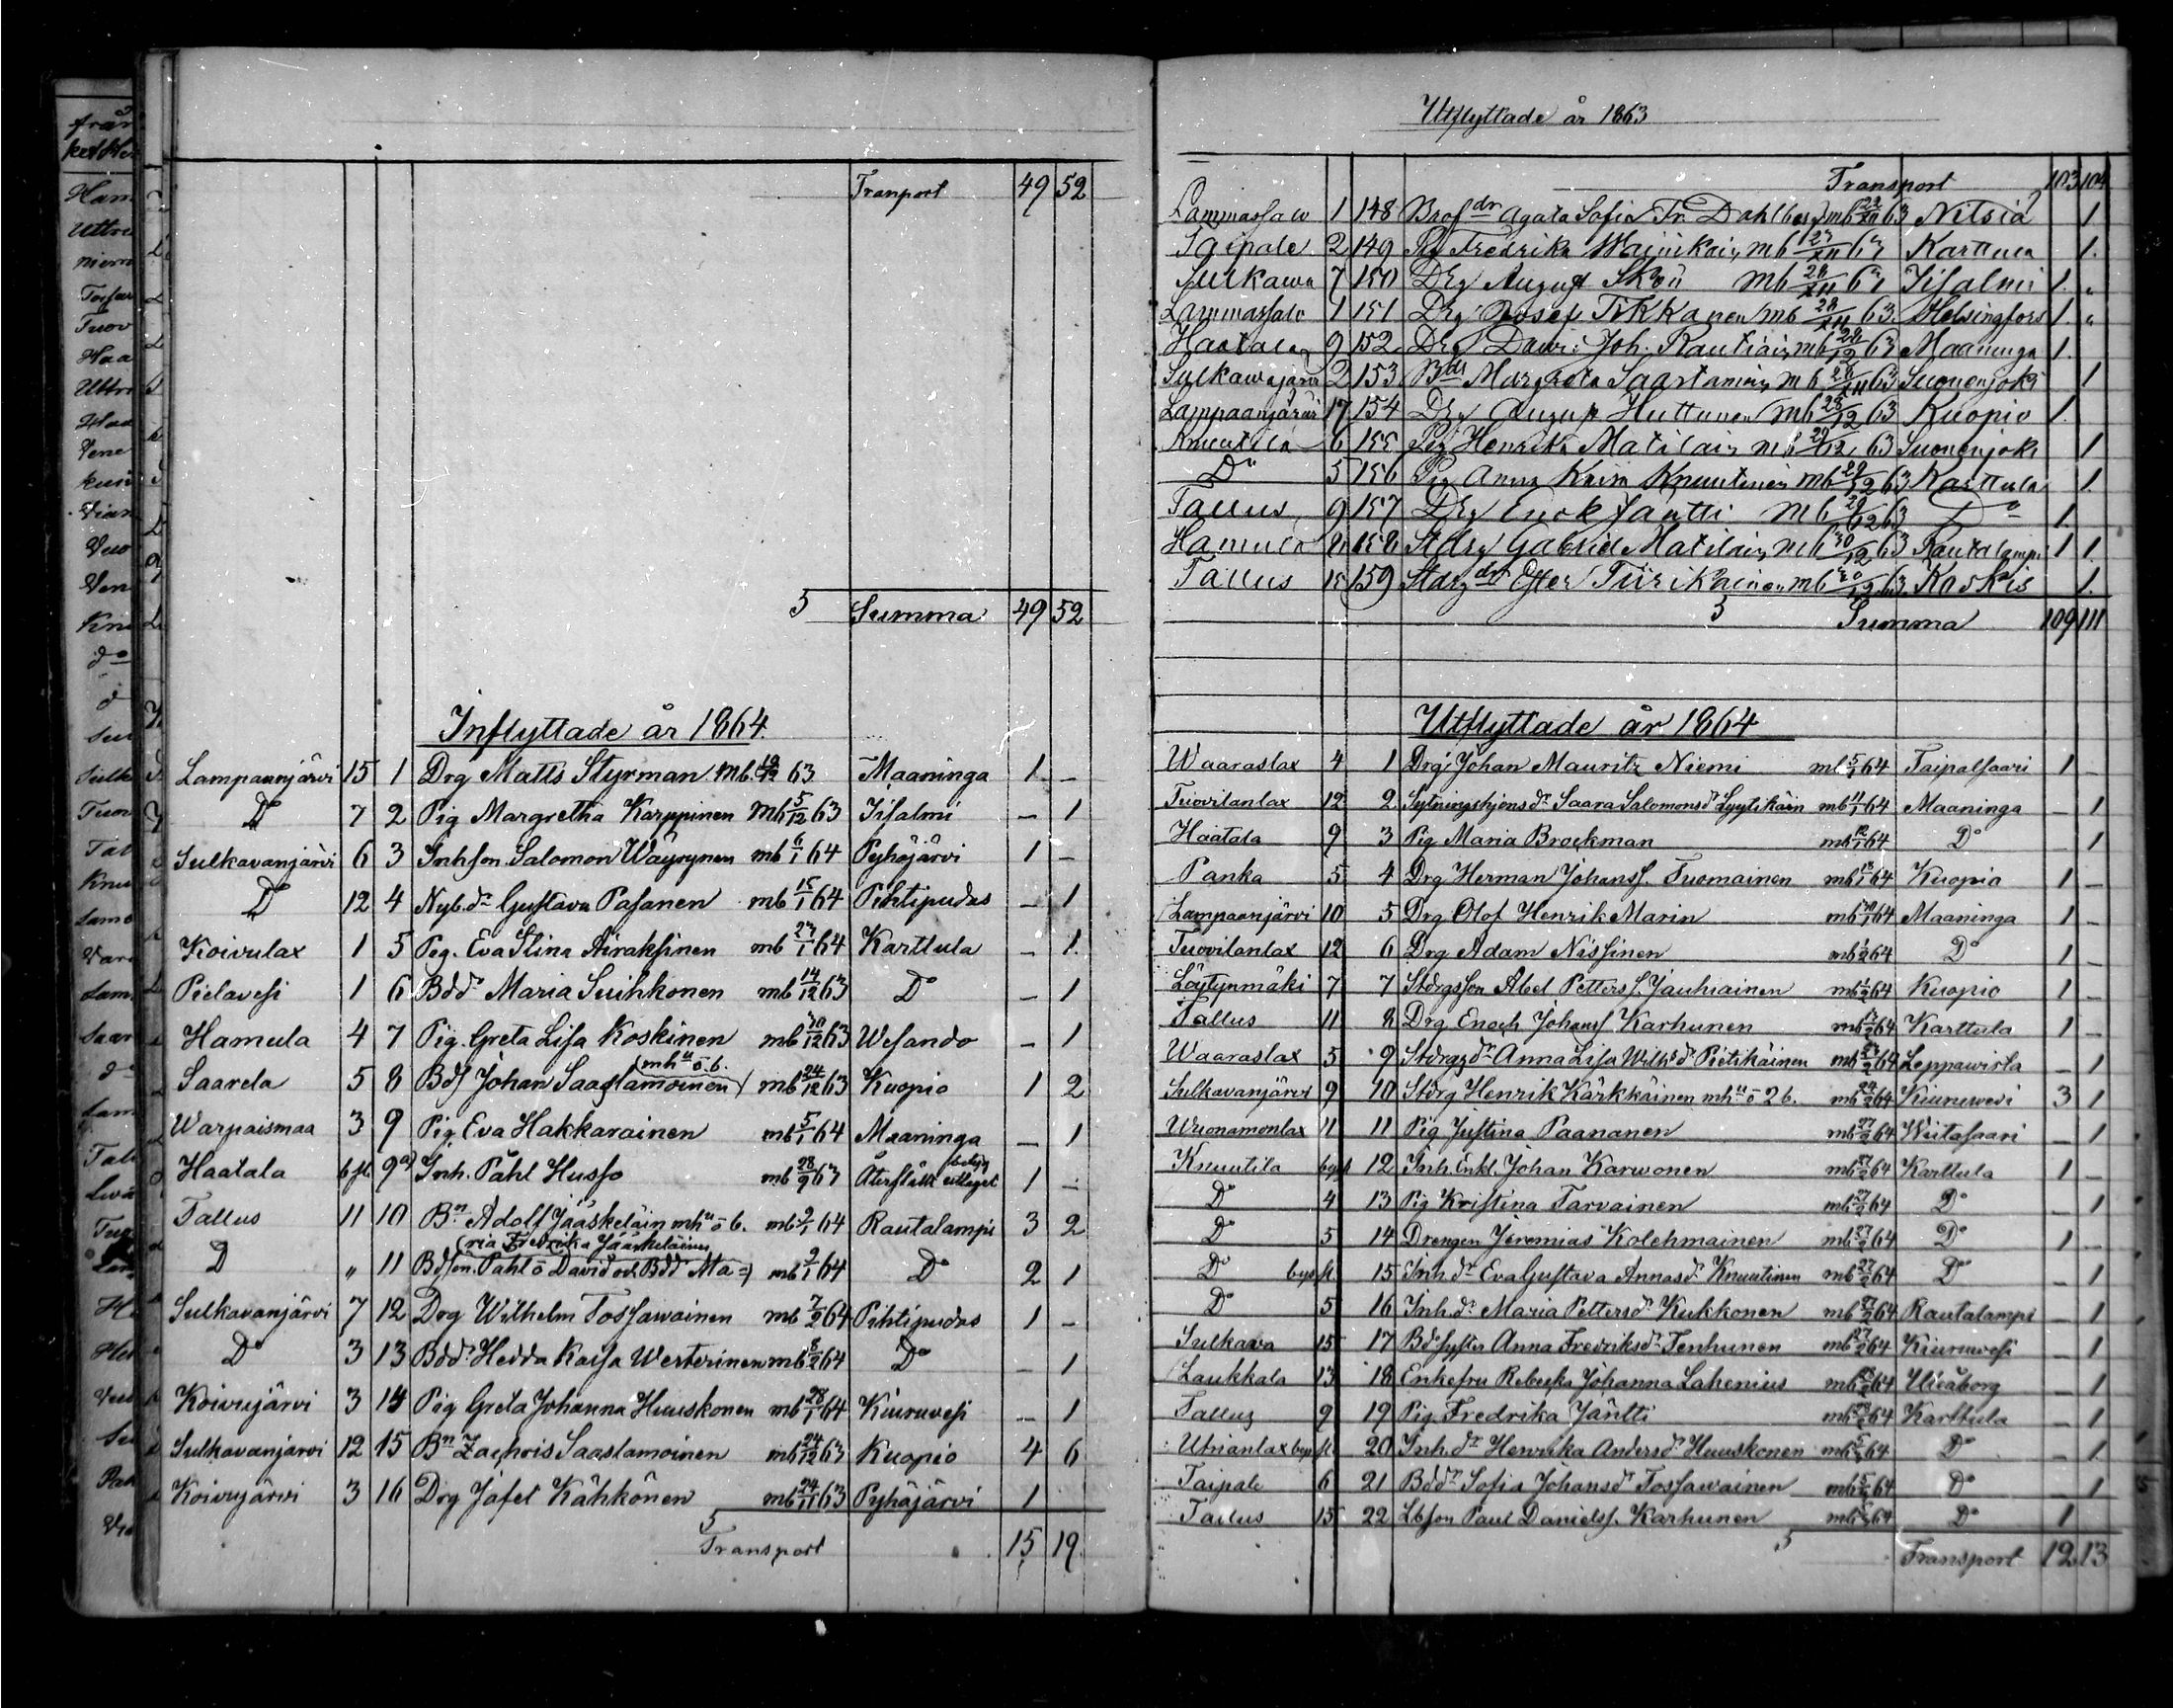 Transport 49 52
5 Summa 49 52
Inflyttade år 1864.
Lampaanjärvi 15 1 Drg Matts Styrman mb. 63 Maaninga 1 –
Do 7 2 Pig Margretha Karppinen mb 5/12 63 Iisalmi – 1
Sulkavanjärvi 6 3 Inhson Salomon Wäyrynen mb 6/1 64 Pyhäjärvi 1 –
Do 12 4 Nyb.dr Gustava Pasanen mb 15/1 64 Pihtipudas – 1
Koivulax 1 5 Pig. Eva Stina Airaksinen mb 27/1 64 Karttula – 1.
Pielavesi 1 6 Bddr Maria Suihkonen mb 14/12 63 Do – 1
Hamula 4 7 Pig. Greta Lisa Koskinen mb 30/12 63 Wesando – 1
Saarela 5 8 Bdf Johan Saastamoinen (mhu o b.) mb 24/12 63 Kuopio 1 2
Warpaismaa 3 9 Pig. Eva Hakkarainen mb 5/1 64 Maaninga – 1
Haatala 6 9a) Inh. Påhl Husso mb 28/9 63 Återställt betyg 1 –
Tallus 11 10 Bn Adolf Jääskeläin mhu o b. mb 2/1 64 Rautalampi 3 2
(ria Fredrika Jääskeläinen
D " 11 Bdson. Påhl o David och Bddr Ma=) mb 2/1 64 Do 2 1
Sulkavanjärvi 7 12 Drg Wilhelm Tossawainen mb 7/2 64 Pihtipudas 1 –
Do 3 13 Bddr Hedda Kaisa Westerinen mb 8/2 64 Do – 1
Koivujärvi 3 14 Pig Greta Johanna Huuskonen mb 28/1 64 Kiuruvesi – 1
Sulkavanjärvi 12 15 Bn Zachris Saastamoinen mb 24/12 63 Kuopio 4 6
Koivujärvi 3 16 Drg Jafet Kähkönen mb 24/11 63 Pyhäjärvi 1
5 Transport 15 19
Utflyttade år 1863
Transport 103 104
Lammassalo 1 148 Agata Sofia Dahlberg mb 63 Nilsiä 1
Taipale 2 149 Fredrika mb 63 Karttula 1.
Sulkawa 7 150 Drg August mb 28/XII 63 Iisalmi 1. "
Lammassalo 1 151 Drg Josef Tikkanen mb 28/XII 63. Helsingfors 1. "
Haatala 9 152 Drg Dawi: Joh. Rautiain mb 28/12 63 Maaninga 1.
Sulkawajärvi 2 153 Bdr Margreta Saastamoin mb 63 Suonenjoki 1
Lampaanjärvi 17 154 Drg August Huttunen mb 28/12 63 Kuopio 1.
Knuutila 6 155 Pig Henrika Matilain mb 29/12 63 Suonenjoki 1
Do 5 156 Pig Anna Knuutinen mb 29/12 63 Karttula 1.
Tallus 9 157 Drg Enok Jäntti mb 29/12 63 Do 1.
Hamula 158 Stdrg Gabriel Matilain mb 30/12 63 Rautalampi 1 1.
Tallus 15 159 Stdrg dr Ester Tiirikainen mb 63. 1.
5 Summa 109 111
Utflyttade år 1864
Waaraslax 4 1 Drg: Johan Mauritz Niemi mb 5/1 64 Taipalsaari 1 –
Tuovilanlax 12 2 Sytningshjons dr Saara Salomonsdr Lyytikäin mb 11/1 64 Maaninga – 1
Haatala 9 3 Pig Maria Brockman mb 12/1 64 Do – 1
Panka 5 4 Drg Herman Johansf. Tuomainen mb 13/1 64 Kuopio 1 –
Lampaanjärvi 10 5 Drg Olof Henrik Marin mb 64 Maaninga 1 –
Tuovilanlax 12 6 Drg Adam Nissinen mb 64 Do 1 –
Löytynmäki 7 7 Stdrgsson Abel Petterss. Jauhiainen mb 64 Kuopio 1 –
Tallus 11 8 Drg Enoch Johansf Karhunen mb 64 Karttula 1 –
Waaraslax 5 9 Stdrgdr Anna Lisa Wilhdr Pietikäinen mb 64 Leppawirta – 1
Sulkavanjärvi 9 10 Stdrg Henrik Kärkkäinen mhu o 2 b. mb 24/2 64 Kiuruwesi 3 1
Wuonamonlax 11 11 Pig Justina Paananen mb 27/2 64 Wiitasaari – 1
Knuutila 12 Inh. Enkl. Johan Karwonen mb 27/2 64 Karttula 1 –
Do 4 13 Pig Kristina Tarvainen mb 27/2 64 Do – 1
Do 5 14 Drengen Jeremias Kolehmainen mb 27/2 64 Do 1 –
Do 15 Inh.dr Eva Gustava Annasdr Knuutinen mb 27/2 64 Do – 1
Do 5 16 Inh.dr Maria Pettersdr Kukkonen mb 64 Rautalampi – 1
Sulkava 15 17 Bdesyster Anna Fredriksdr Tenhunen mb 27/2 64 Kiuruvesi – 1
Laukkala 13 18 Enkefru Rebecka Johanna Lahenius mb 64 Uleåborg – 1
Tallus 9 19 Pig. Fredrika Jäntti mb 64 Karttula – 1
Utrianlax 20 Inh.dr Henrika Andersdr Huuskonen mb 64 Do – 1
Taipale 6 21 Bddr Sofia Johansdr Tossawainen mb 64 Do – 1
Tallus 15 22 Lbson Paul Danielss. Karhunen mb 64 Do 1
5 Transport 12 13